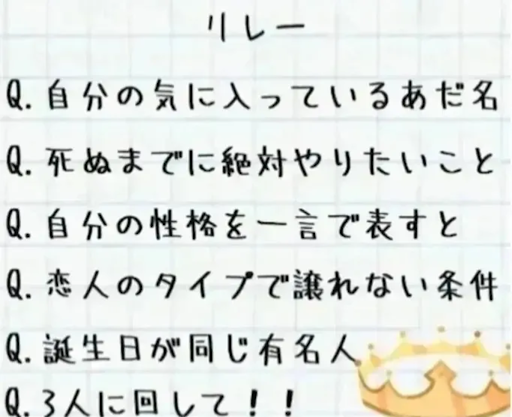 リレー
Q.自分の気に入っているあだ名
Q.死ぬまでに絶対やりたいこと
Q.自分の性格を一言で表すと
Q.恋人のタイプで譲れない条件
Q.誕生日が同じ有名人
Q.3人に回して!!